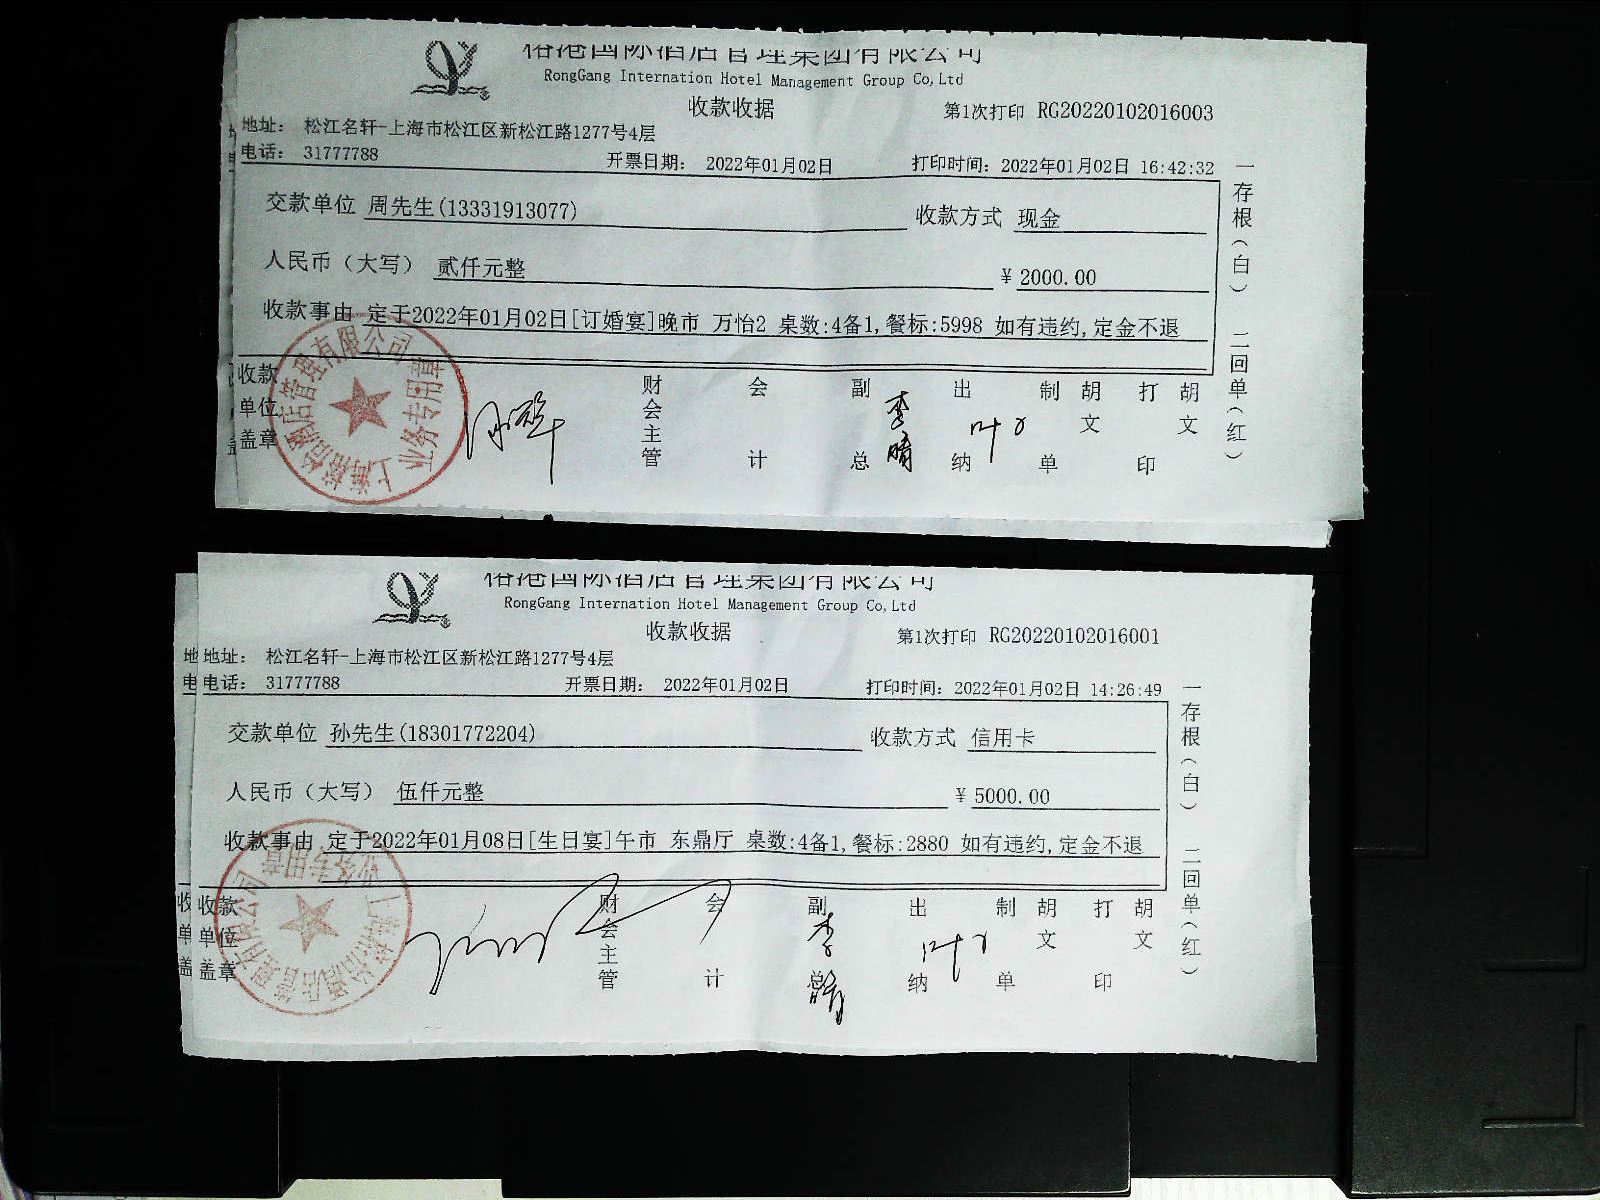 榕港国际酒店管理集团有限公司
RongGang Internation Hotel Management Group Co,Ltd
收款收据
第1次打印 RG20220102016003
地址： 松江名轩-上海市松江区新松江路1277号4层
电话： 31777788
开票日期： 2022年01月02日
打印时间：2022年01月02日 16:42:32
交款单位 周先生(13331913077)
收款方式 现金
人民币（大写） 贰仟元整
¥ 2000.00
收款事由 定于2022年01月02日[订婚宴]晚市 万怡2 桌数:4备1,餐标:5998 如有违约,定金不退
收款单位盖章
财会主管
会计
副总
李晴
出纳
制单
胡文
打印
胡文
一存根(白) 二回单(红)
业务专用章
榕港国际酒店管理集团有限公司
RongGang Internation Hotel Management Group Co,Ltd
收款收据
第1次打印 RG20220102016001
地址： 松江名轩-上海市松江区新松江路1277号4层
电话： 31777788
开票日期： 2022年01月02日
打印时间：2022年01月02日 14:26:49
交款单位 孙先生(18301772204)
收款方式 信用卡
人民币（大写） 伍仟元整
¥ 5000.00
收款事由 定于2022年01月08日[生日宴]午市 东鼎厅 桌数:4备1,餐标:2880 如有违约,定金不退
收款单位盖章
财会主管
会计
副总
李晴
出纳
制单
胡文
打印
胡文
一存根(白) 二回单(红)
业务专用章